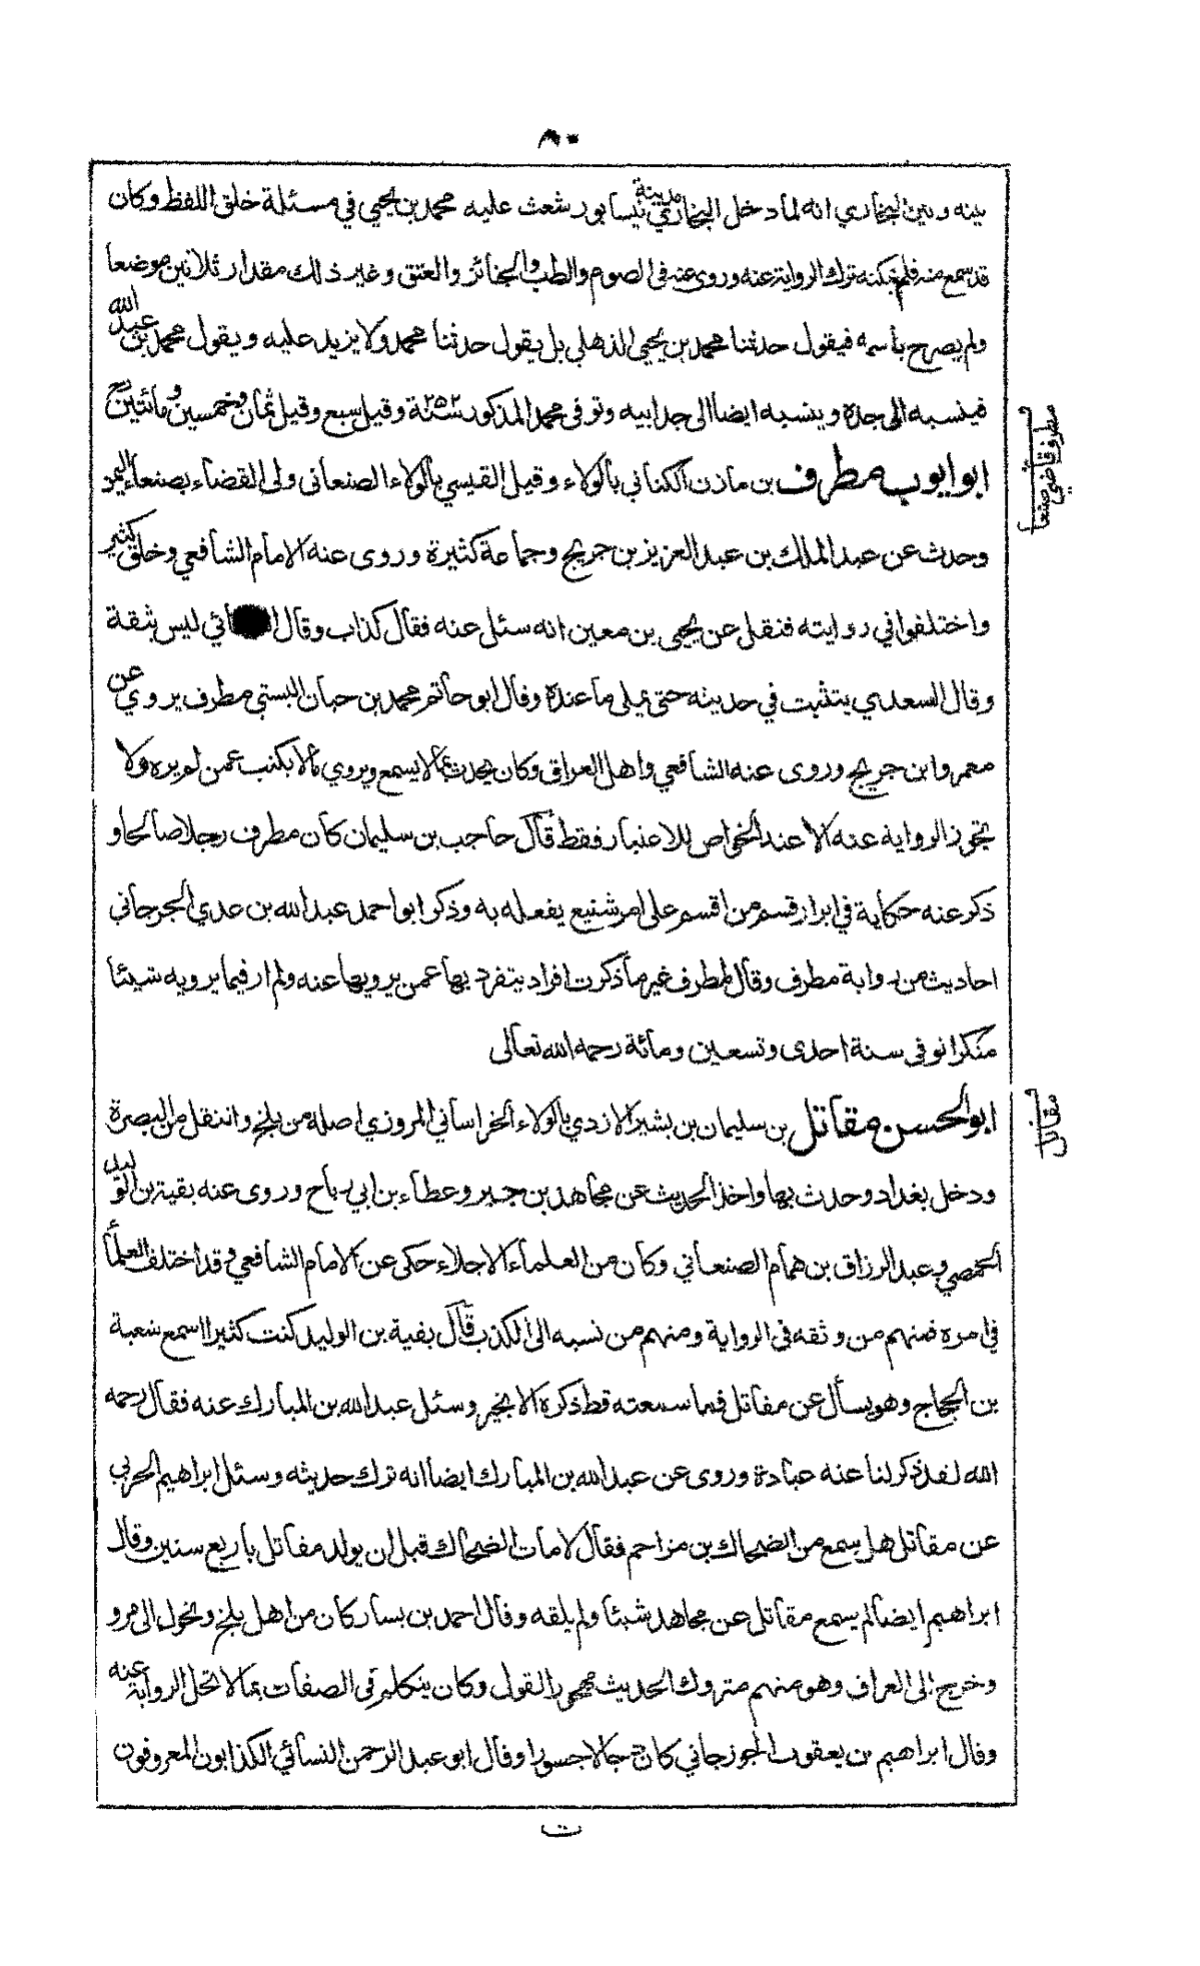 ٨٠
بينه وبين البخاري انه لما دخل البخاري مدينة نيسابور شعث عليه محمد بن يحيى في مسئلة خلق اللفظ وكان
قد سمع منه فلم يمكنه ترك الرواية عنه وروى عنه في الصوم والطب والجنائز والعتق وغير ذلك مقدار ثلاثين موضعا
ولم يصرح بأسمه فيقول حدثنا محمد بن يحيى الذهلي بل يقول حدثنا محمد ولا يزيد عليه ويقول محمد بن عبد الله
فينسبه الى جده وينسبه ايضا الى جد ابيه وتوفى محمد المذكور سنة ٢٥٢ وقيل سبع وقيل ثمان وخمسين ومائتين رح
ابو ايوب مطرف بن مازن الكناني بالولاء وقيل القيسي بالولاء الصنعانى ولى القضاء بصنعاء اليمن
مطرف قاضي صنعا
وحدث عن عبد الملك بن عبد العزيز بن جريج وجماعة كثيرة وروى عنه الامام الشافعي وخلق كثير
واختلفوا في روايته فنقل عن يحيى بن معين انه سئل عنه فقال كذاب وقال ائي ليس بثقة
وقال السعدي يتثبت في حديثه حتى يملى ما عنده وقال ابو حاتم محمد بن حبان البستي مطرف يروي عن
معمر وابن جريج وروى عنه الشافعي واهل العراق وكان يحدث بما لا يسمع ويروي ما لا يكتب عمن لم يره ولا
تجوز الرواية عنه الا عند الخواص للاعتبار فقط قال حاجب بن سليمان كان مطرف رجلا صالحا و
ذكر عنه حكاية في ابرار قسم من اقسم على امر شنيع يفعله به وذكر ابو احمد عبد الله بن عدي الجرجاني
احاديث من رواية مطرف وقال لمطرف غير ما ذكرت افراد يتفرد بها عمن يرويها عنه ولم ار فيما يرويه شيئا
منكرا توفى سنة احدى وتسعين ومائة رحمه الله تعالى
ابو الحسن مقاتل بن سليمان بن بشير الازدي بالولاء الخراساني المروزي اصله من بلخ وانتقل من البصرة
مقاتل
ودخل بغداد وحدث بها واخذ الحديث عن مجاهد بن جبر وعطاء بن ابي رباح وروى عنه بقية بن الوليد
الحمصي وعبد الرزاق بن همام الصنعاني وكان من العلماء الاجلاء حكى عن الامام الشافعي وقد اختلف العلماء
في امره فمنهم من وثقه في الرواية ومنهم من نسبه الى الكذب قال بقية بن الوليد كنت كثيرا اسمع شعبة
بن الحجاج وهو يسأل عن مقاتل فما سمعته قط ذكره الا بخير وسئل عبد الله بن المبارك عنه فقال رحمه
الله لقد ذكر لنا عنه عبادة وروى عن عبد الله بن المبارك ايضا انه ترك حديثه وسئل ابراهيم الحربي
عن مقاتل هل سمع من الضحاك بن مزاحم فقال لا مات الضحاك قبل ان يولد مقاتل باربع سنين وقال
ابراهيم ايضا لم يسمع مقاتل عن مجاهد شيئا ولم يلقه وقال احمد بن يسار كان من اهل بلخ وتحول الى مرو
وخرج الى العراق وهو منهم متروك الحديث مهجور القول وكان يتكلم في الصفات بما لا تحل الرواية عنه
وقال ابراهيم بن يعقوب الجوزجاني كان دجالا جسورا وقال ابو عبد الرحمن النسائي الكذابون المعروفون
ت